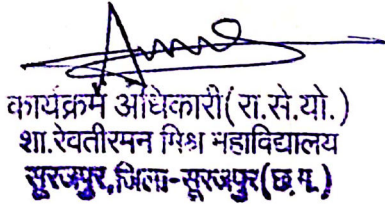 कार्यक्रम अधिकारी(रा.से.यो.)
शा.रेवतीरमन मिश्र महाविद्यालय
सूरजपुर,जिला-सूरजपुर(छ.ग.)